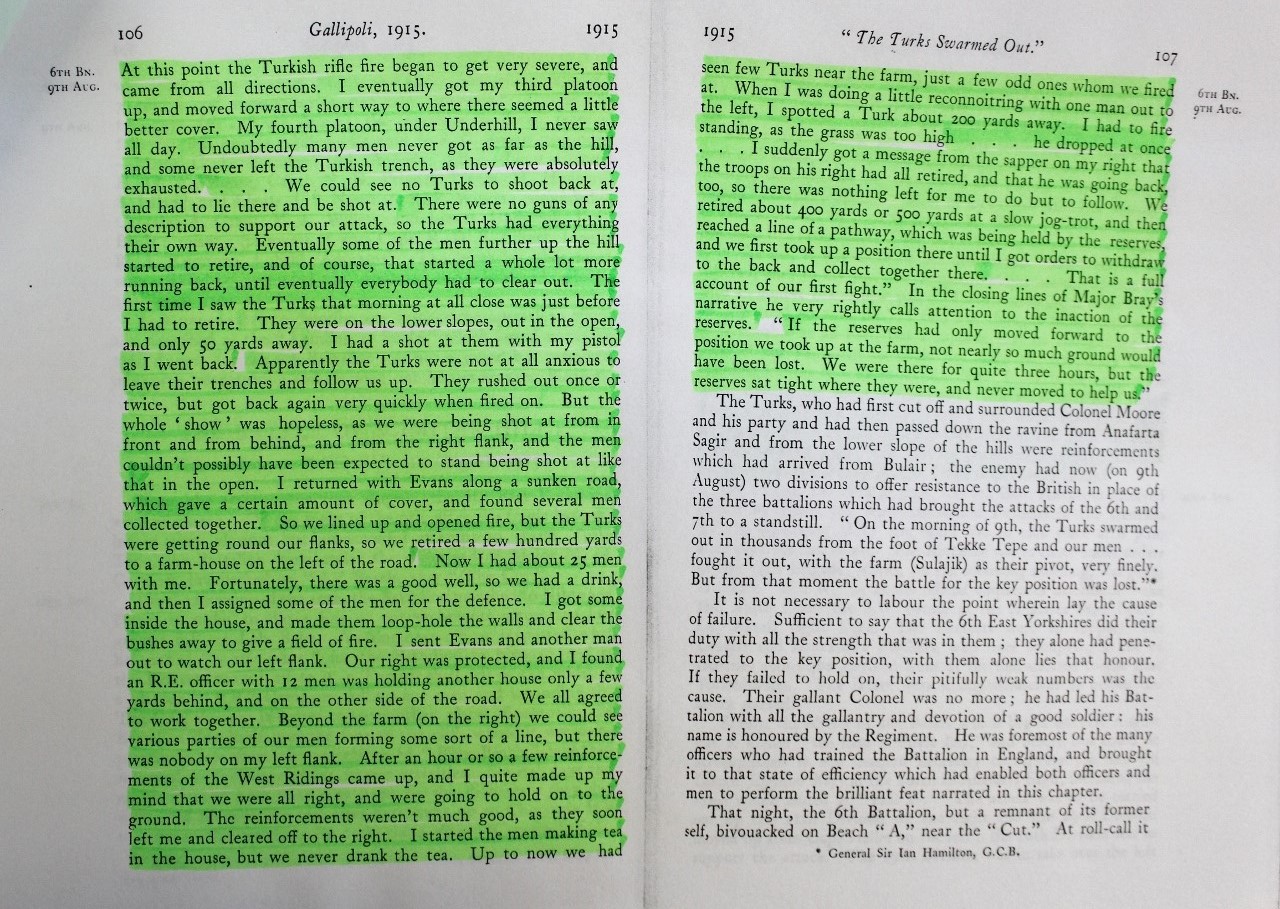 106
Gallipoli, 1915.
1915
6TH BN.
9TH AUG.
At this point the Turkish rifle fire began to get very severe, and
came from all directions. I eventually got my third platoon
up, and moved forward a short way to where there seemed a little
better cover. My fourth platoon, under Underhill, I never saw
all day. Undoubtedly many men never got as far as the hill,
and some never left the Turkish trench, as they were absolutely
exhausted. . . . We could see no Turks to shoot back at,
and had to lie there and be shot at. There were no guns of any
description to support our attack, so the Turks had everything
their own way. Eventually some of the men further up the hill
started to retire, and of course, that started a whole lot more
running back, until eventually everybody had to clear out. The
first time I saw the Turks that morning at all close was just before
I had to retire. They were on the lower slopes, out in the open,
and only 50 yards away. I had a shot at them with my pistol
as I went back. Apparently the Turks were not at all anxious to
leave their trenches and follow us up. They rushed out once or
twice, but got back again very quickly when fired on. But the
whole ‘show’ was hopeless, as we were being shot at from in
front and from behind, and from the right flank, and the men
couldn't possibly have been expected to stand being shot at like
that in the open. I returned with Evans along a sunken road,
which gave a certain amount of cover, and found several men
collected together. So we lined up and opened fire, but the Turks
were getting round our flanks, so we retired a few hundred yards
to a farm-house on the left of the road. Now I had about 25 men
with me. Fortunately, there was a good well, so we had a drink,
and then I assigned some of the men for the defence. I got some
inside the house, and made them loop-hole the walls and clear the
bushes away to give a field of fire. I sent Evans and another man
out to watch our left flank. Our right was protected, and I found
an R.E. officer with 12 men was holding another house only a few
yards behind, and on the other side of the road. We all agreed
to work together. Beyond the farm (on the right) we could see
various parties of our men forming some sort of a line, but there
was nobody on my left flank. After an hour or so a few reinforce-
ments of the West Ridings came up, and I quite made up my
mind that we were all right, and were going to hold on to the
ground. The reinforcements weren't much good, as they soon
left me and cleared off to the right. I started the men making tea
in the house, but we never drank the tea. Up to now we had
1915
“ The Turks Swarmed Out.”
107
6TH BN.
9TH AUG.
seen few Turks near the farm, just a few odd ones whom we fired
at. When I was doing a little reconnoitring with one man out to
the left, I spotted a Turk about 200 yards away. I had to fire
standing, as the grass was too high . . . . he dropped at once
. . . . I suddenly got a message from the sapper on my right that
the troops on his right had all retired, and that he was going back,
too, so there was nothing left for me to do but to follow. We
retired about 400 yards or 500 yards at a slow jog-trot, and then
reached a line of a pathway, which was being held by the reserves,
and we first took up a position there until I got orders to withdraw
to the back and collect together there. . . . That is a full
account of our first fight.” In the closing lines of Major Bray's
narrative he very rightly calls attention to the inaction of the
reserves. “If the reserves had only moved forward to the
position we took up at the farm, not nearly so much ground would
have been lost. We were there for quite three hours, but the
reserves sat tight where they were, and never moved to help us.”
The Turks, who had first cut off and surrounded Colonel Moore
and his party and had then passed down the ravine from Anafarta
Sagir and from the lower slope of the hills were reinforcements
which had arrived from Bulair ; the enemy had now (on 9th
August) two divisions to offer resistance to the British in place of
the three battalions which had brought the attacks of the 6th and
7th to a standstill. “ On the morning of 9th, the Turks swarmed
out in thousands from the foot of Tekke Tepe and our men . . .
fought it out, with the farm (Sulajik) as their pivot, very finely.
But from that moment the battle for the key position was lost.”*
It is not necessary to labour the point wherein lay the cause
of failure. Sufficient to say that the 6th East Yorkshires did their
duty with all the strength that was in them ; they alone had pene-
trated to the key position, with them alone lies that honour.
If they failed to hold on, their pitifully weak numbers was the
cause. Their gallant Colonel was no more ; he had led his Bat-
talion with all the gallantry and devotion of a good soldier : his
name is honoured by the Regiment. He was foremost of the many
officers who had trained the Battalion in England, and brought
it to that state of efficiency which had enabled both officers and
men to perform the brilliant feat narrated in this chapter.
That night, the 6th Battalion, but a remnant of its former
self, bivouacked on Beach “ A,” near the “ Cut.” At roll-call it
* General Sir Ian Hamilton, G.C.B.